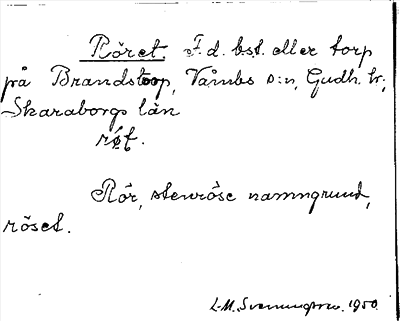 Röret. F.d. bst. eller torp
på Brandstorp, Våmbs s:n, Gudh. hr,
Skaraborgs län
røt.
Rör, stenröse namngrund,
röset.
L-M. Svenungsson. 1950.